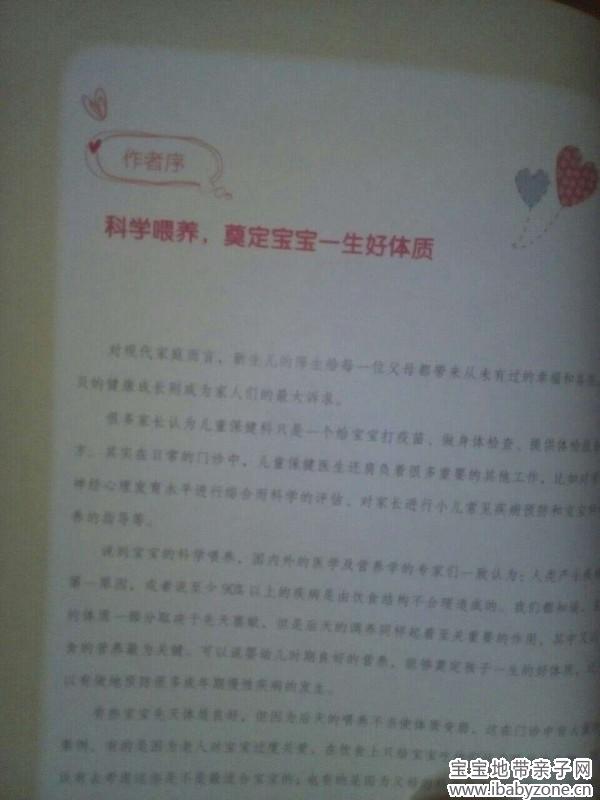 作者序
科学喂养，奠定宝宝一生好体质
对现代家庭而言，新生儿的降生给每一位父母都带来从未有过的幸福和喜悦，
贝的健康成长则成为家人们的最大诉求。
很多家长认为儿童保健科只是一个给宝宝打疫苗、做身体检查、提供体检
方。其实在日常的门诊中，儿童保健医生还肩负着很多重要的其他工作，比如对
神经心理发育水平进行综合而科学的评估、对家长进行小儿常见疾病预防和宝宝
养的指导等。
说到宝宝的科学喂养，国内外的医学及营养学的专家们一致认为：人类产生疾病
第一原因，或者说至少90%以上的疾病是由饮食结构不合理造成的。我们都知道，
的体质一部分取决于先天禀赋，但是后天的调养同样起着至关重要的作用，其中又以
食的营养最为关键。可以说婴幼儿时期良好的营养，能够奠定孩子一生的好体质，
以有效地预防很多成年期慢性疾病的发生。
有些宝宝先天体质良好，但因为后天的喂养不当使体质受损，这在门诊中有
案例。有的是因为老人对宝宝过度关爱，在饮食上只给宝宝
没有去考虑这些是不是最适合宝宝的；也有的是因为父母
宝宝地带亲子网
www.ibabyzone.cn